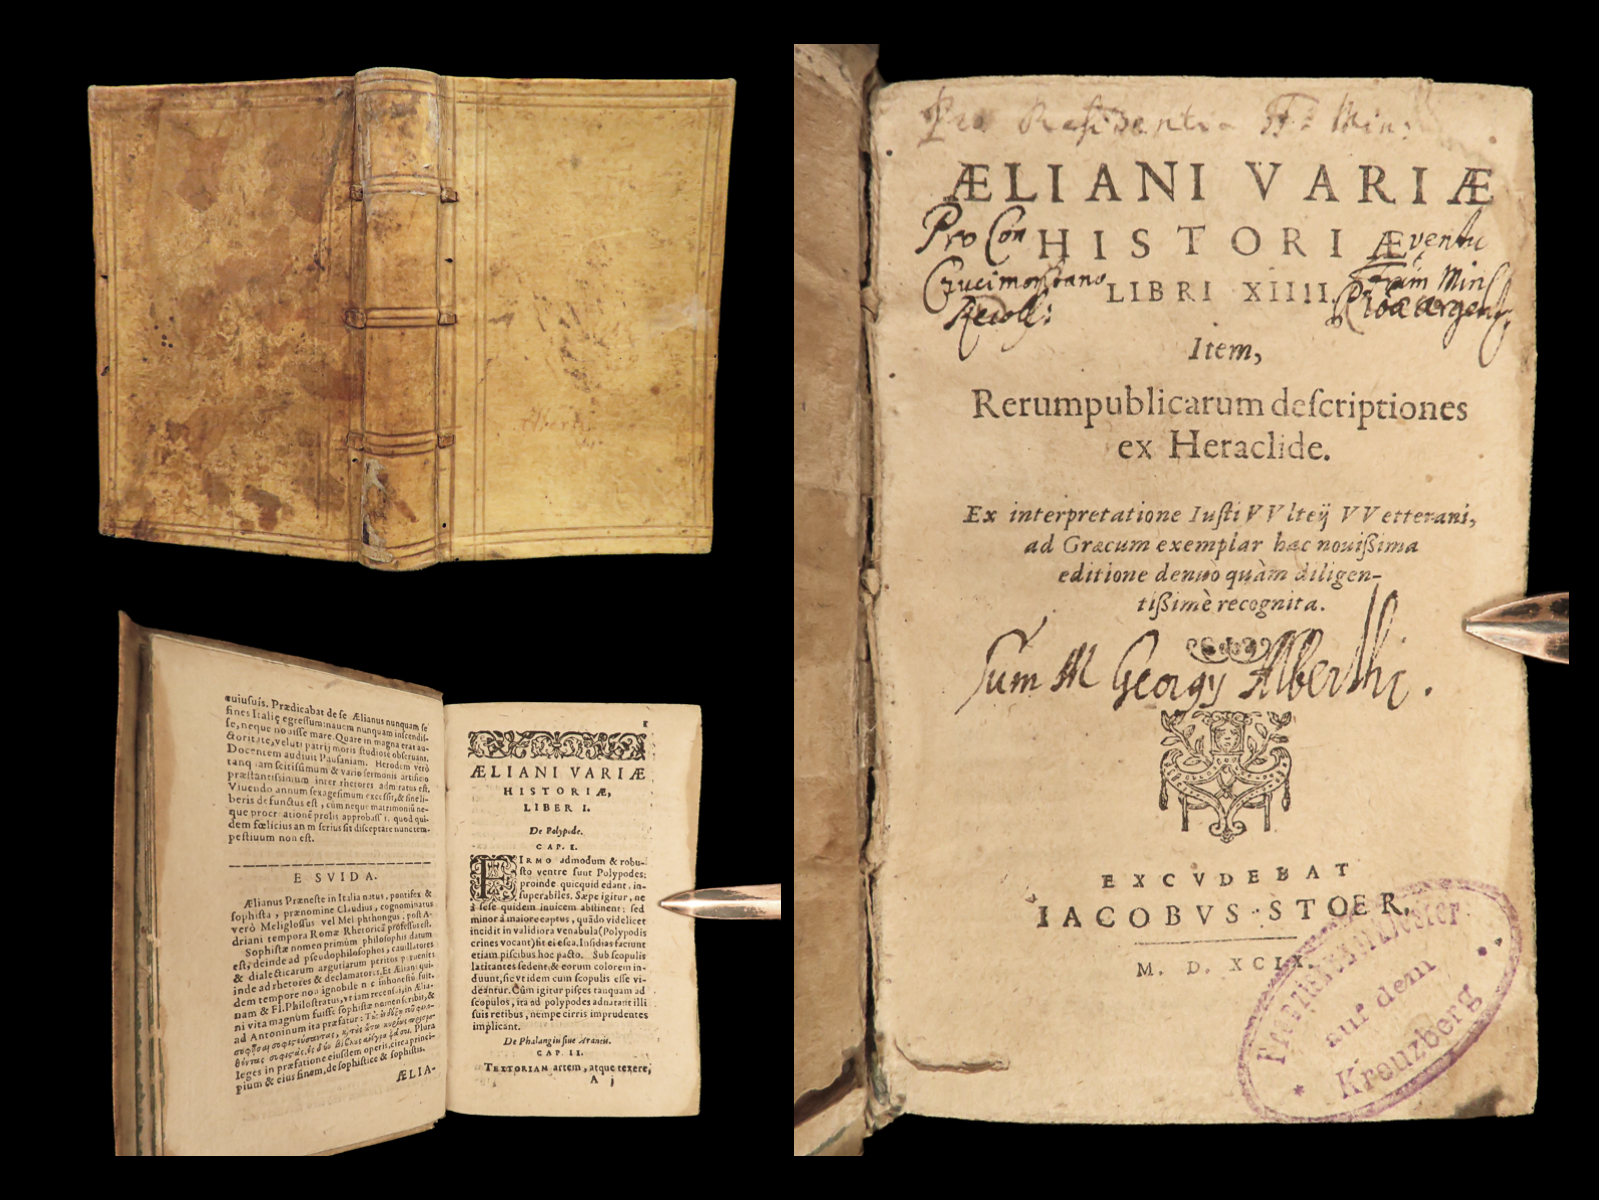 auiusuis. Prædicabat de se Ælianus nunquam se
fines Italię egressum: nauem nunquam inscendis-
se, neque nosse mare. Quare in magna erat au-
ctoritate, veluti patrij moris studiose obseruans.
Docentem audiuit Pausaniam. Herodem verò
tanquam scitissimum & vario sermonis artificio
præstantissimum inter rhetores admiratus est.
Viuendo annum sexagesimum excessit, & sine li-
beris defunctus est, cùm neque matrimoniũ ne-
que procreationē prolis approbass t. quod qui-
dem fœlicius an m serius sit disceptare nunc tem-
pestiuum non est.
E SVIDA.
Ælianus Præneste in Italia natus, pontifex &
sophista, prænomine Claudius, cognominatus
verò Meliglossus vel Meliphthongus, post A-
driani tempora Romæ Rhetoricā professus est.
Sophistæ nomen primùm philosophis datum
est, deinde ad pseudophilosophos, cauillatores
& dialecticarum argutiarum peritos peruenit:
inde ad rhetores & declamatores. Et Æliani qui-
dem tempore non ignobile n c inhonestũ fuit.
nam & Fl. Philostratus, vt iam recensui, in Ælia-
ni vita magnum fuisse sophistæ nomen scribit, &
ad Antoninum ita præfatur:
Plura
leges in præfatione eiusdem operis, circa princi-
pium & eius finem, de sophistice & sophistis.
ÆLIA-
1
ÆLIANI VARIÆ
HISTORIÆ,
LIBER I.
De Polypode.
CAP. I.
FIRMO admodum & robu-
sto ventre sunt Polypodes:
proinde quicquid edant, in-
superabiles. Sæpe igitur, ne
à sese quidem inuicem abstinent: sed
minor à maiore captus, quãdo videlicet
incidit in validiora venabula (Polypodis
crines vocant) fit ei esca. Insidias faciunt
etiam piscibus hoc pacto. Sub scopulis
latitantes sedent, & eorum colorem in-
duunt, sic vt idem cum scopulis esse vi-
deantur. Cùm igitur pisces tanquam ad
scopulos, ita ad polypodes adnatant illi
suis retibus, nempe cirris imprudentes
implicant.
De Phalangiis siue Araneis.
CAP. II.
TEXTORIAM artem, atque texere,
A j
Pro Residentia FF. Min:
ÆLIANI VARIÆ
Pro Con HISTORIÆ ventu
Crucimontano LIBRI XIIII. Fratrum Min
Recoll:
Item,
Rerumpublicarum descriptiones
ex Heraclide.
Ex interpretatione Iusti VVlteij VVetterani,
ad Græcum exemplar hac nouißima
editione denuò quàm diligen-
tißimè recognita.
Sum M Georgy Alberthi.
EXCVDEBAT
IACOBVS STOER.
M. D. XCIX.
Franziskanerkloster
auf dem
Kreuzberg